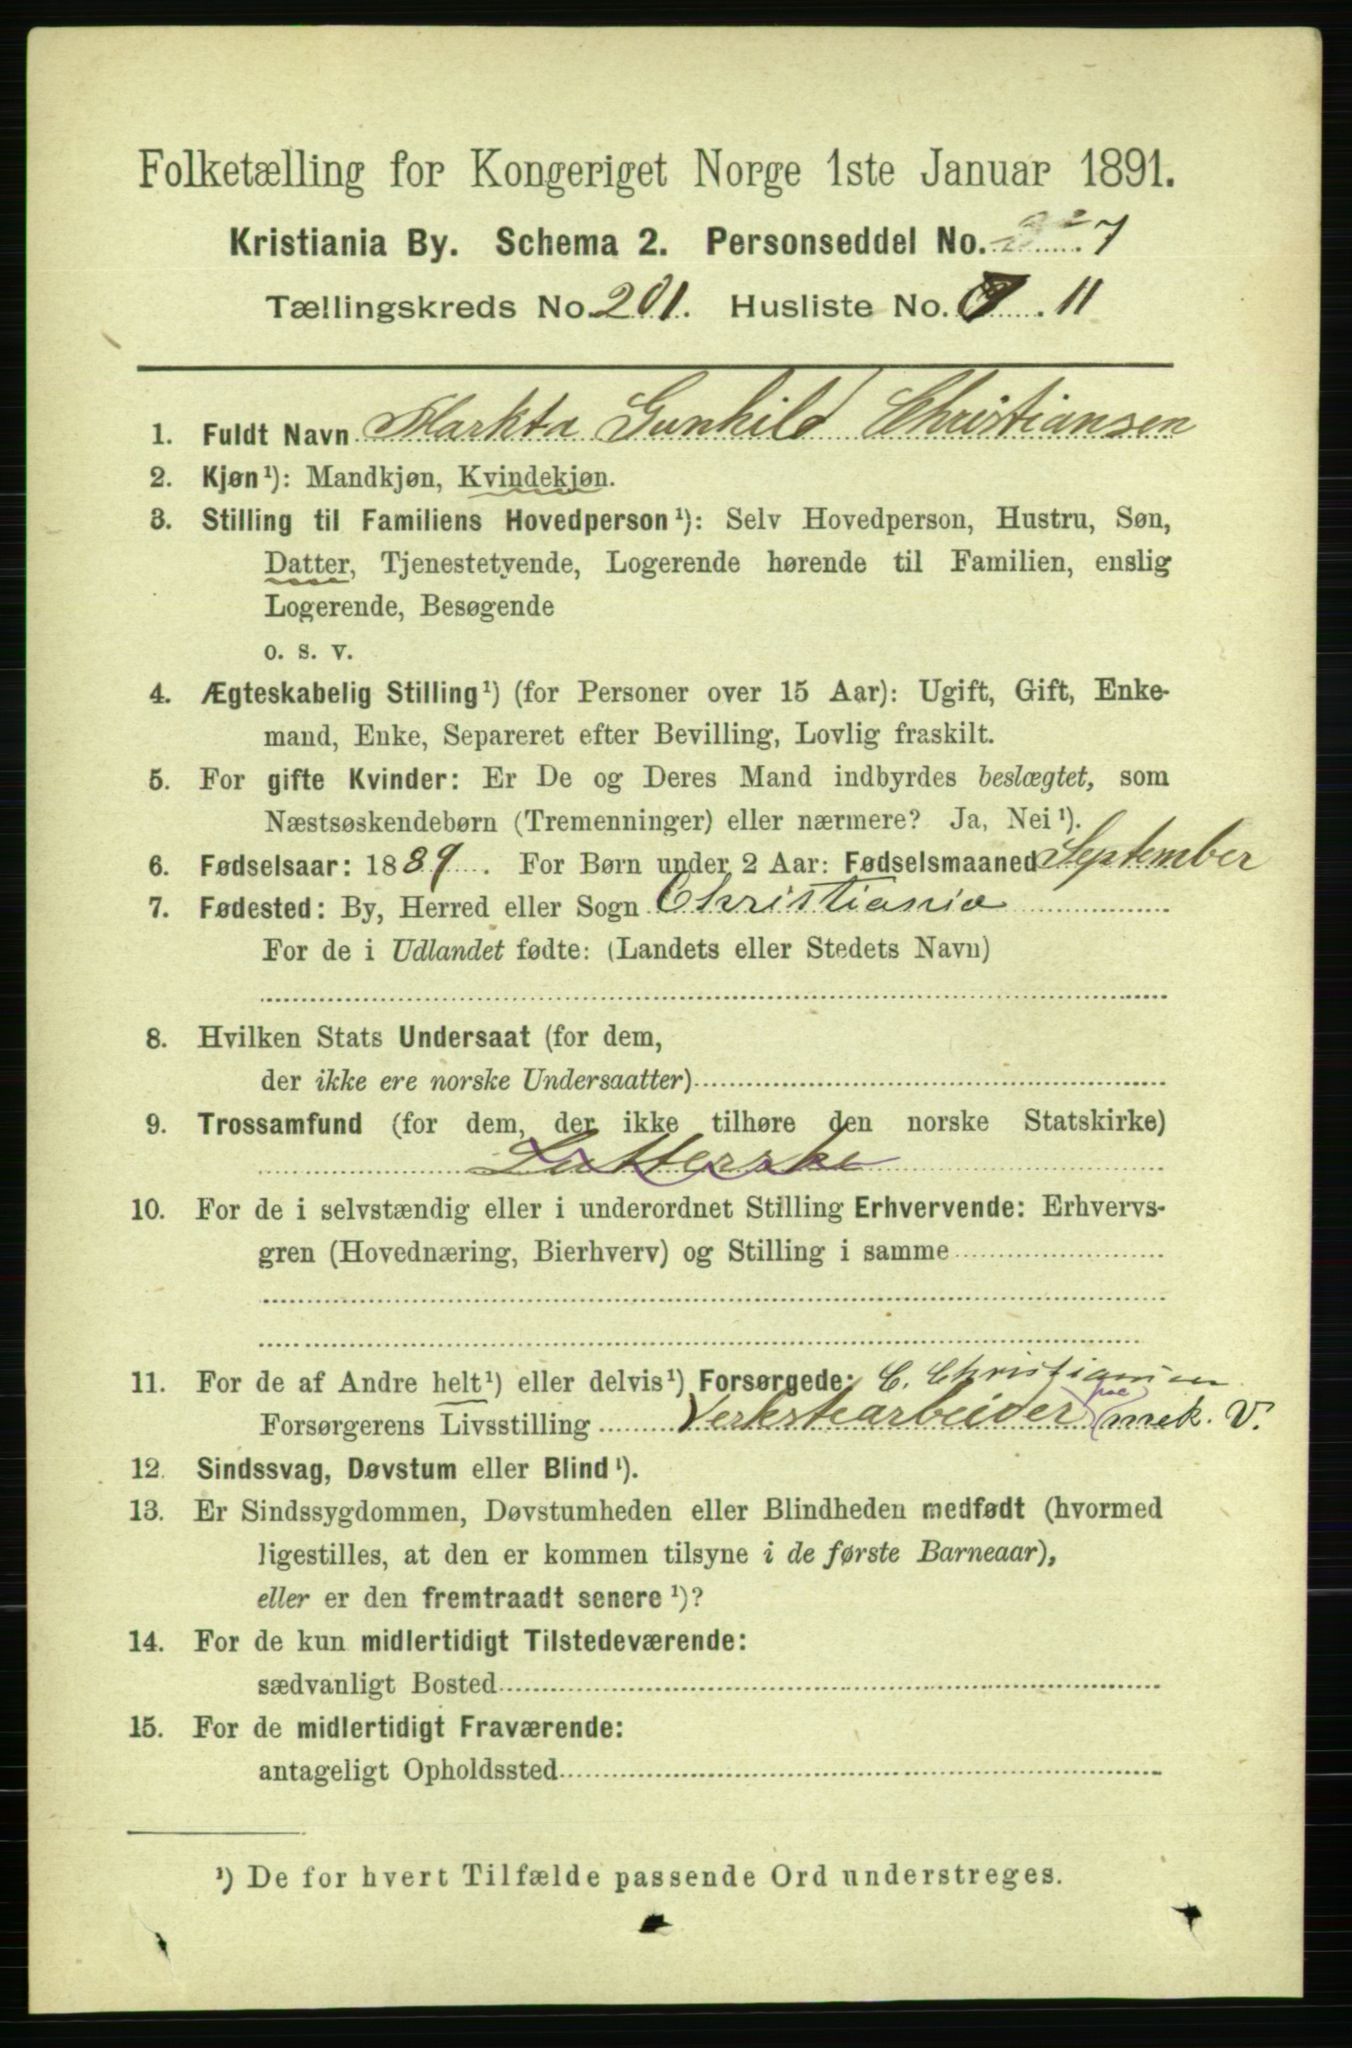 Folketælling for Kongeriget Norge 1ste Januar 1891.
Kristiania By. Schema 2. Personseddel No. 7
Tællingskreds No. 201. Husliste No. 11
1. Fuldt Navn Markta Gunhild Christiansen
2. Kjøn¹): Mandkjøn, Kvindekjøn.
3. Stilling til Familiens Hovedperson¹): Selv Hovedperson, Hustru, Søn,
Datter, Tjenestetyende, Logerende hørende til Familien, enslig
Logerende, Besøgende
o. s. v.
4. Ægteskabelig Stilling¹) (for Personer over 15 Aar): Ugift, Gift, Enke-
mand, Enke, Separeret efter Bevilling, Lovlig fraskilt.
5. For gifte Kvinder: Er De og Deres Mand indbyrdes beslægtet, som
Næstsøskendebørn (Tremenninger) eller nærmere? Ja, Nei¹).
6. Fødselsaar: 1889. For Børn under 2 Aar: Fødselsmaaned September
7. Fødested: By, Herred eller Sogn Christiania
For de i Udlandet fødte: (Landets eller Stedets Navn)
8. Hvilken Stats Undersaat (for dem,
der ikke ere norske Undersaatter)
9. Trossamfund (for dem, der ikke tilhøre den norske Statskirke)
Lutterske
10. For de i selvstændig eller i underordnet Stilling Erhvervende: Erhvervs-
gren (Hovednæring, Bierhverv) og Stilling i samme
11. For de af Andre helt¹) eller delvis¹) Forsørgede: C. Christiansen
Forsørgerens Livsstilling Verkstearbeider paa mek. V.
12. Sindssvag, Døvstum eller Blind¹).
13. Er Sindssygdommen, Døvstumheden eller Blindheden medfødt (hvormed
ligestilles, at den er kommen tilsyne i de første Barneaar),
eller er den fremtraadt senere¹)?
14. For de kun midlertidigt Tilstedeværende:
sædvanligt Bosted
15. For de midlertidigt Fraværende:
antageligt Opholdssted
¹) De for hvert Tilfælde passende Ord understreges.